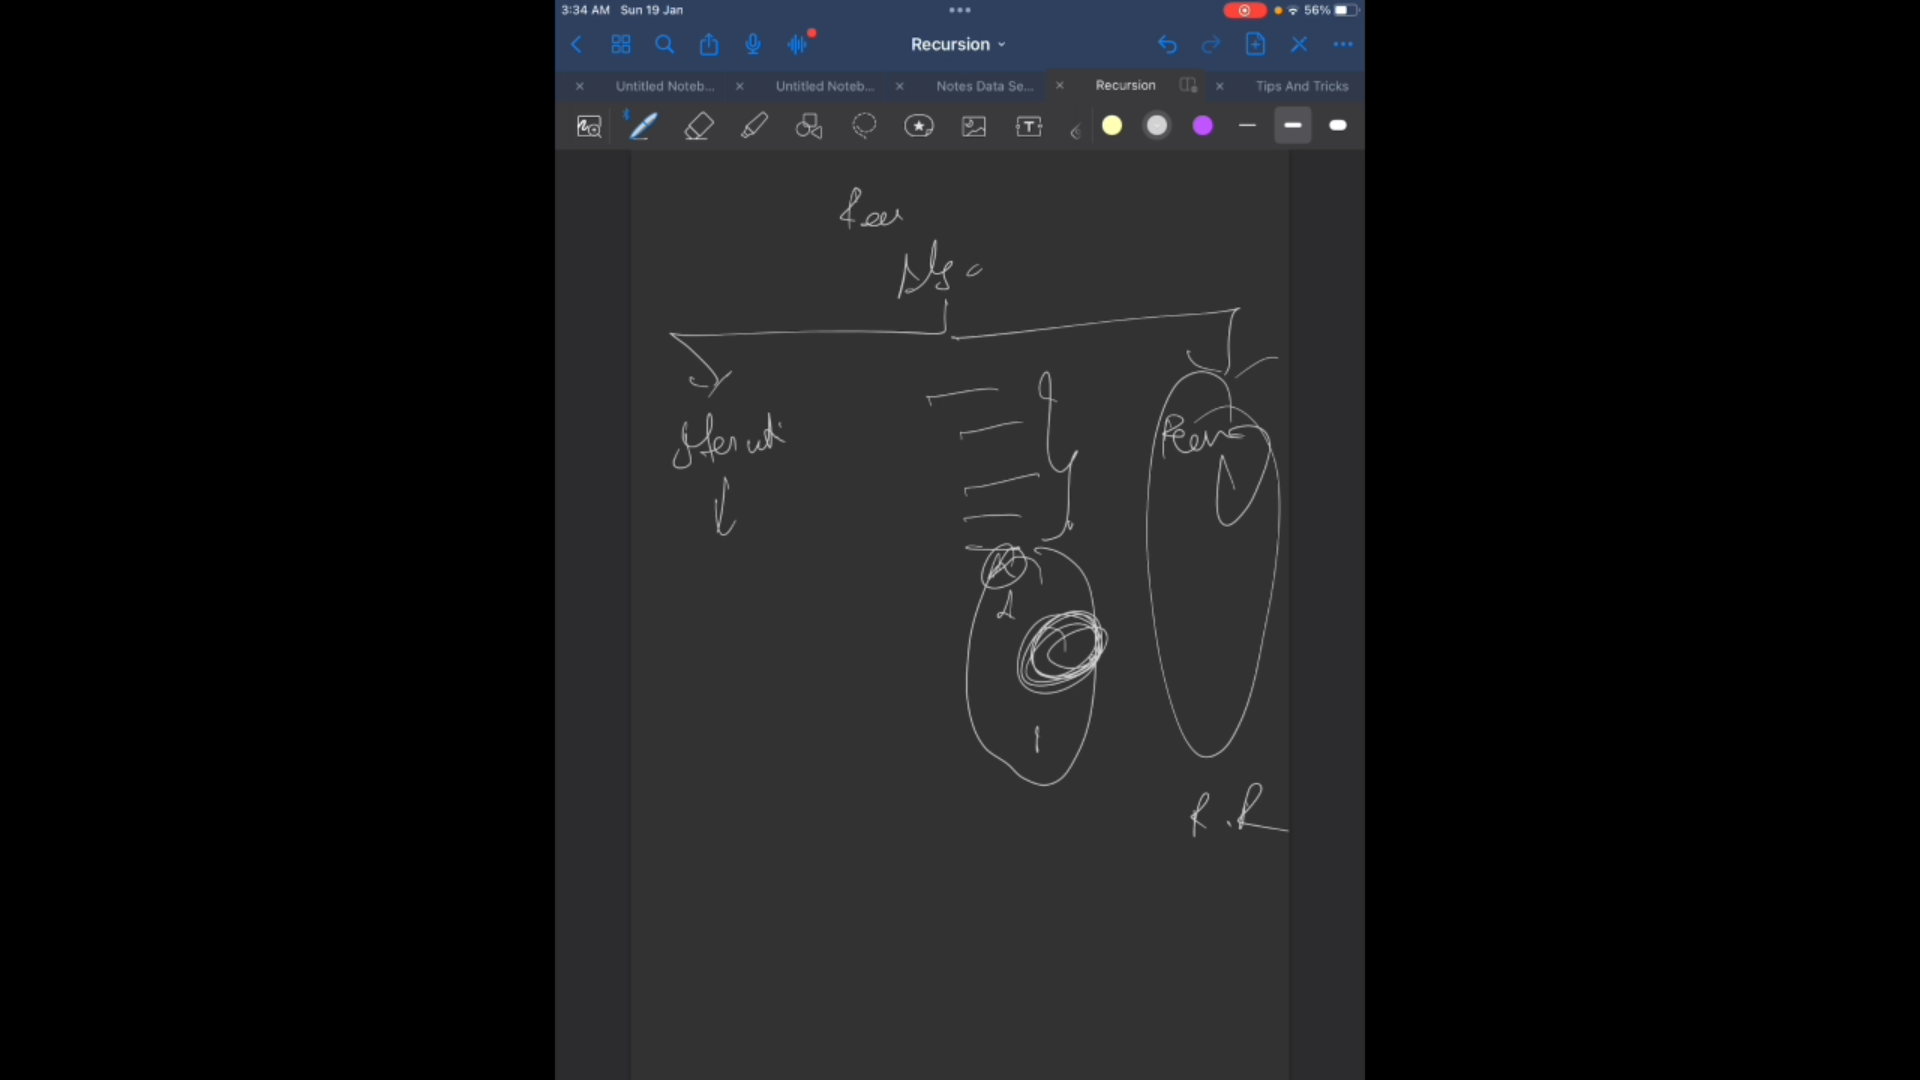 3:34 AM Sun 19 Jan 56%
Recursion
Untitled Noteb... Untitled Noteb... Notes Data Se... Recursion Tips And Tricks
T
Algo
Iterati
R.R